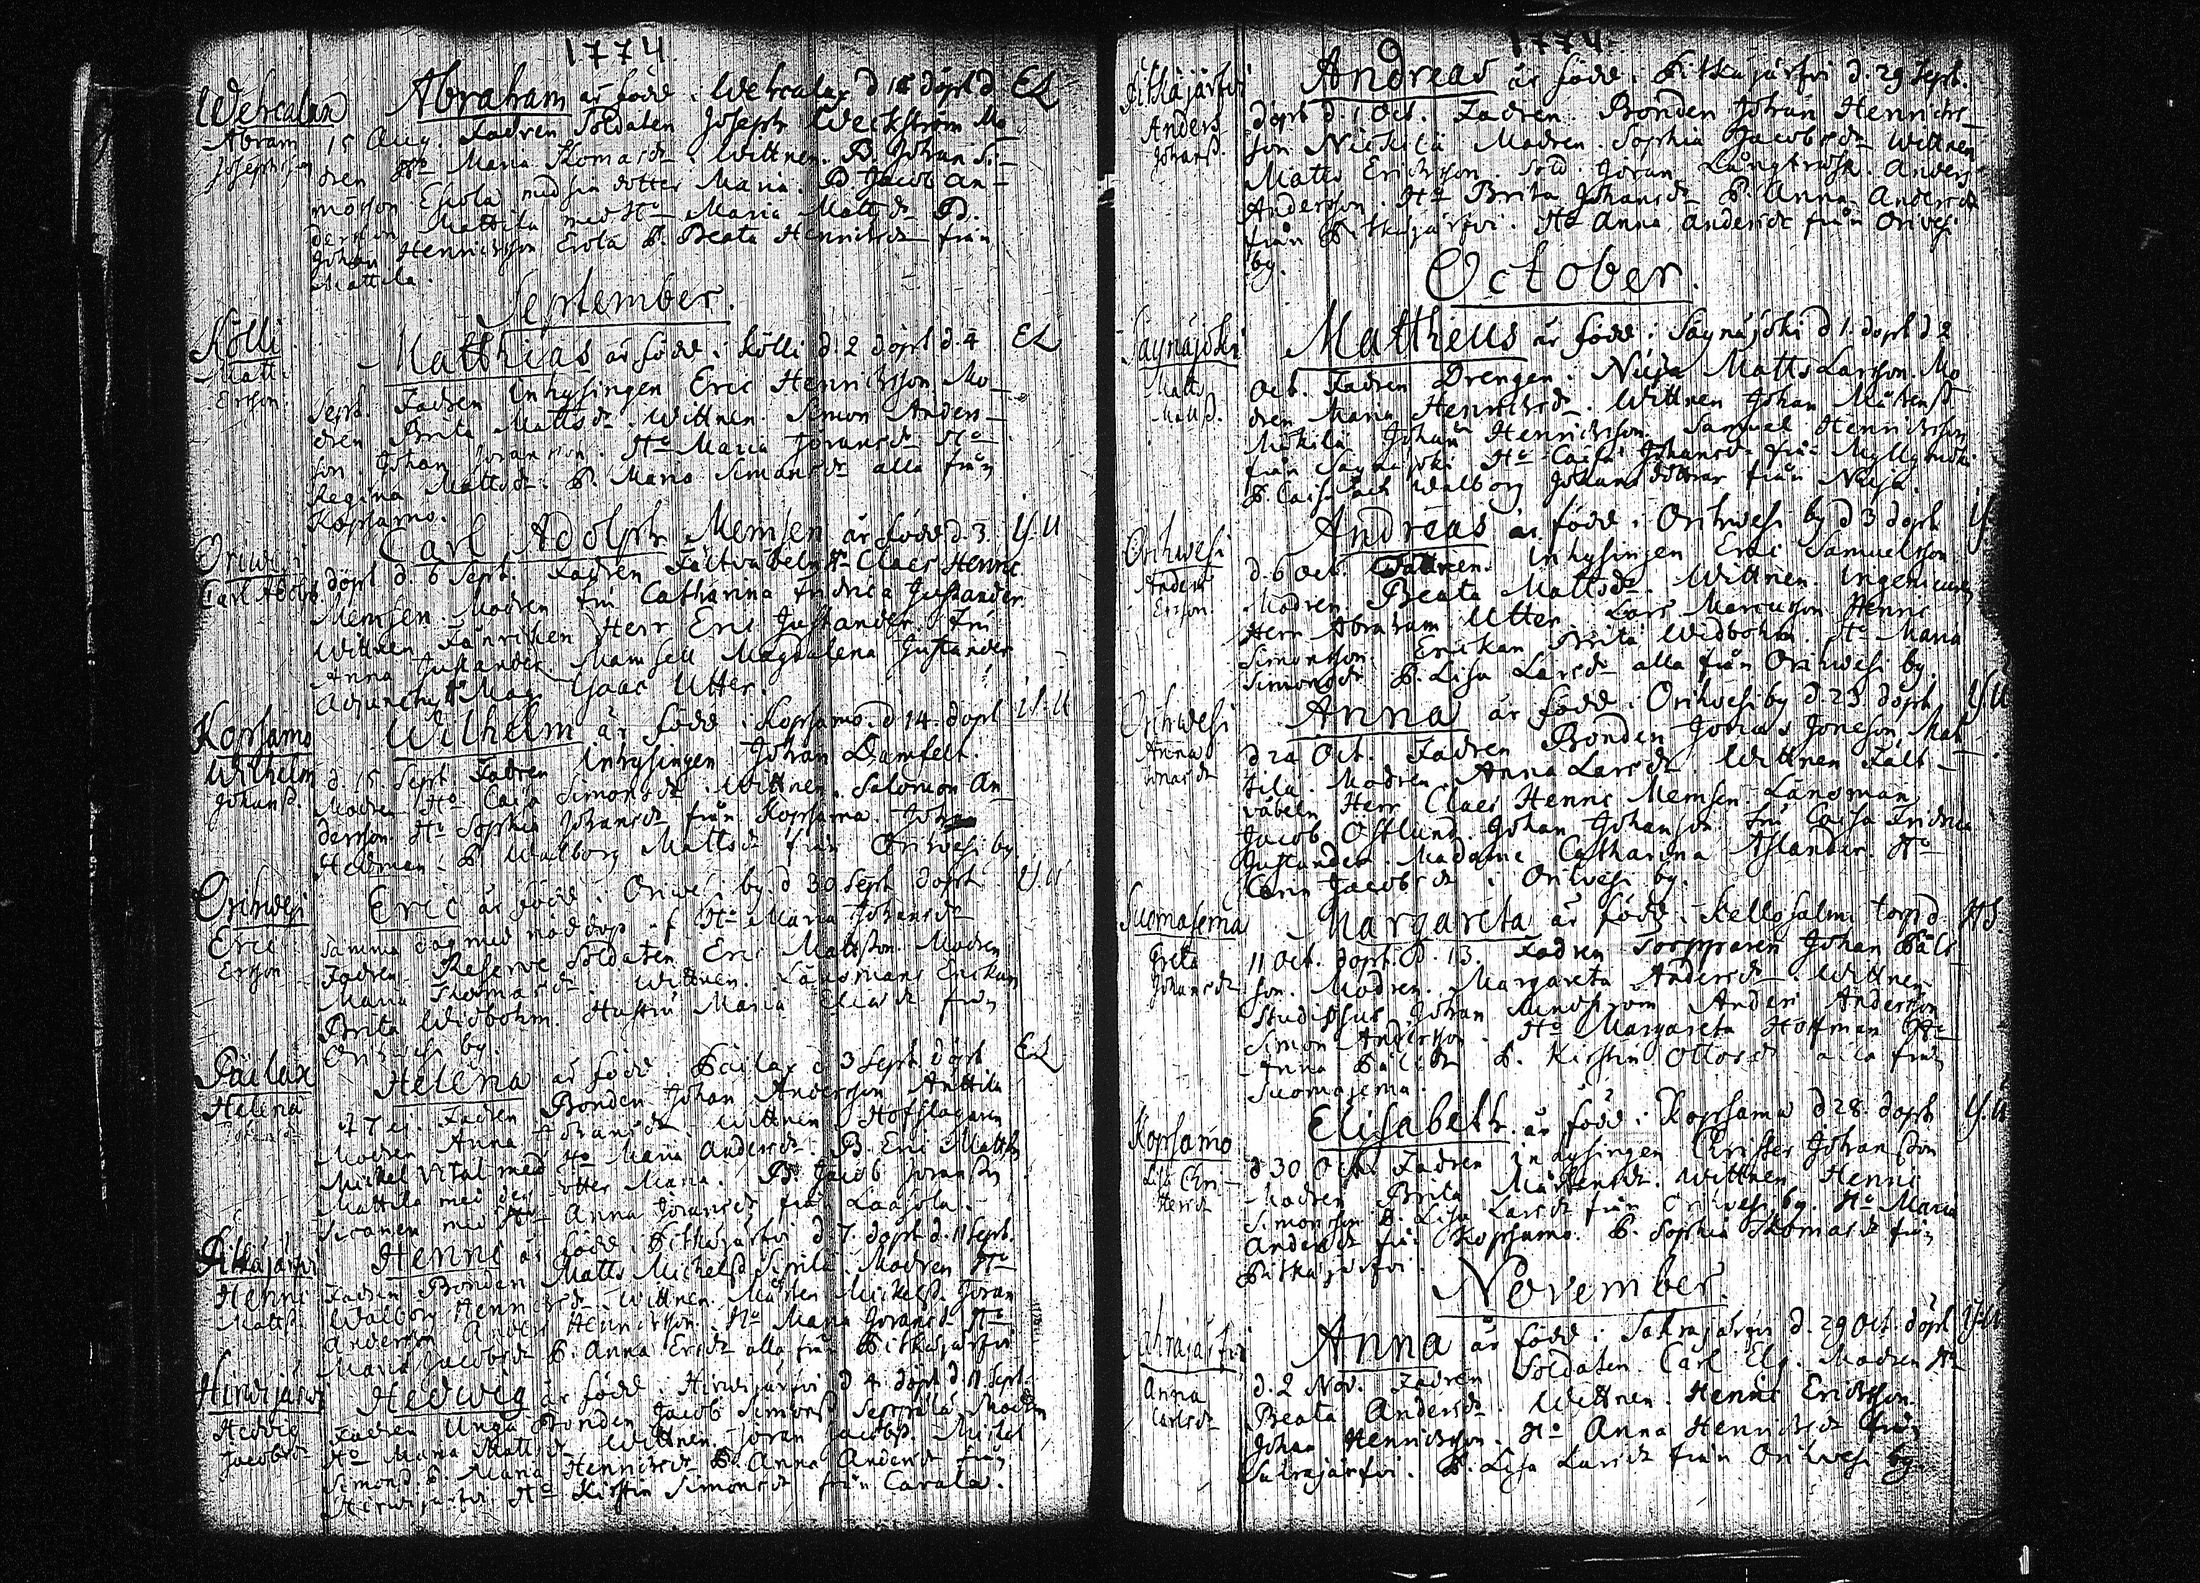 1774.
Wehcalax
Abram
Josephsson
Abraham är född i Wehcalax d 15 döpt d. EL
15 Aug. Fadren Soldaten Joseph Weckström Mo-
dren Ho Maria Thomasdr. Wittnen. B. Johan Si-
monsson Erola med sin dotter Maria. B. Jacob An-
dersson Mattila med Ho Maria Mattsdr B.
Johan Henricsson Erola P. Beata Henricsdr från
Mattila.
September.
Kölli
Matt.
Ersson.
Matthias är född i Kölli d. 2 döpt d. 4 EL
Sept. Fadren Inhysingen Eric Henricsson Mo-
dren Brita Mattsdr. Wittnen. Simon Anders-
son. Johan Göransson. Ho Maria Göransdr Ho
Regina Mattsdr. P. Maria Simonsdr alla från
Kopsamo.
Oriwesi
Carl Adolph
Carl Adolph Memsen är född d. 3 Y.U
döpt d. 6 Sept. Fadren Fältväbeln Hr Claes Henric
Memsen. Modren Fru Catharina Fridrica Justander
Wittnen Fänriken Herr Eric Justander. Fru
Anna Justander. Mamsell Magdalena Justander
Adjuncten Mag. Isaac Utter.
Kopsamo
Wilhelm
Johanss.
Wilhelm är född i Kopsamo d 14. döpt Y.U
d. 15. Sept Fadren Inhysingen Johan Damfelt.
Modren Ho Caisa Simonsdr. Wittnen. Salomon An-
dersson. Ho Sophia Johansdr från Kopsamo. Johan
Hedman. P. Walborg Mattsdr från Orihwesi by.
Orihwesi
Eric
Ersson
Eric är född i Oriwesi by d 30 Sept döpt Y.U
samma dag med nöddop af Ho Maria Johansdr
Fadren Reserve Soldaten Eric Mattsson. Modren
Maria Thomasdr. Wittnen. Länsmans Enckan
Brita Widbohm. Hustru Maria Eliaedr från
Orihwesi by.
Päilax
Helena
Helena är född i Päilax d 3 Sept döpt EL
d 7 ej. Fadren Bonden Johan Andersson Anttila
Modren Anna Johansdr. Wittnen Hofslagaren
Michel Vital med Ho Maria Andersdr. B. Eric Matts
Mattila med des dotter Maria. B. Jacob Göransson
Siranen med Ho Anna Göransdr från Laasola.
Pitkäjärfvi
Henric
Matts.
Henric är född i Pitkäjärfvi d 7. döpt d. 11 Sept.
Fadren Bonden Matts Michelss Sipilä. Modren Ho
Walborg Henricsdr. Wittnen Mårten Mickelss. Göran
Andersson Anders Henricsson. Ho Maria Göransdr Ho
Maria Jacobsdr P. Anna Ersdr alla från Pitkäjärfvi
Hirwijärwi
Hedvig
Jacobsdr
Hedwig är född i Hirwijärfvi d 4. döpt d 11 Sept.
Fadren Unga Bonden Jacob Simonss Seppälä Modren
Ho Maria Mattsdr. Wittnen. Göran Jacobss. Michel
Simons. P. Maria Henricsdr P. Anna Andersdr från
Hirwijärfvi Ho Kirstin Simonsdr från Cavala.
1774.
Pitkäjärfvi
Anders
Johanss.
Andreas är född i Pitkäjärfvi d. 29 Sept.
döpt d. 1 Oct. Fadren Bonden Johan Henrics-
son Nickilä Modren. Sophia Jacobsdr Wittnen
Matts Ericsson. Sold. Göran Långtrosk. Anders
Andersson. Ho Brita Johansdr P. Anna Andersdr
från Pitkäjärfvi. Ho Anna Andersdr från Orivesi
by.
October.
Säynäjoki
Matts
Mattss.
Mattheus är född i Säynäjoki d 1. döpt d. 2
Oct. Fadren Drengen i Nüja Matts Larsson. Mo
dren Maria Henricsdr. Wittnen Johan Mårtenss
Michila Johan Henricsson Samuel Henricsson
från Säynäjoki Ho Caisa Johansdr från Myllynoki
P. Caisa och Walborg Johansdöttrar från Nüja.
Orihwesi
Anders
Ersson.
Andreas är född i Orihwesi by d 3 döpt Y.
d. 6 Oct. Fadren Inhysingen Eric Samuelsson
Modren Beata Mattsdr. Wittnen. Ingenieuren
Herr Abraham Utter. Lars Marcusson Henric
Simonsson Enckan Brita Widbohm. Ho Maria
Simonsdr P. Lisa Larsdr alla från Orihwesi by.
Orihwesi
Anna
Jonasdr
Anna är född i Orihwesi by d. 23. döpt Y.U
d 24 Oct. Fadren Bonden Jonas Jonesson Mat
tila. Modren Anna Larsdr. Wittnen Fält-
väbeln Herr Claes Henric Memsen. Länsman
Jacob Östlund. Johan Johansson. Fru Caisa Fridrica
Justander. Madame Catharina Aslander. Ho
Carin Jacobsdr i Orihwesi by.
Suomasema
Greta
Johansdr
Margareta är född i Kellosalmi torp d HS.
11 Oct. döpt d. 13. Fadren Torpparen Johan Påls
son. Modren. Margareta Andersdr. Wittnen
Studiosus Johan Lundstrom Anders Andersson
Simon Andersson. Ho Margareta Hoffman Ho
Anna Pålsdr P. Kirstin Ottosdr alla från
Suomasema.
Kopsamo
Lisa Chri-
stersdr
Elisabeth är född i Kopsama d 28. döpt Y.U
d 30 Oct. Fadren inhysingen Christer Johansson
Modren Brita Mårtensdr. Wittnen Henric
Simonsson P. Lisa Larsdr från Orihwesi by. Ho Maria
Andersdr från Kopsamo. P. Sophia Thomasdr från
Pitkäjärfvi.
November.
Sahrajärfvi
Anna
Carlsdr
Anna är född i Sahrajärfvi d. 29 Oct. döpt Y.U
d. 2 Nov. Fadren Soldaten Carl Elg. Modren Ho
Beata Andersdr. Wittnen. Henric Ericsson.
Johan Henricsson. Ho Anna Henricsdr från
Sahrajärfvi. P. Lisa Larsdr från Orihwesi by.